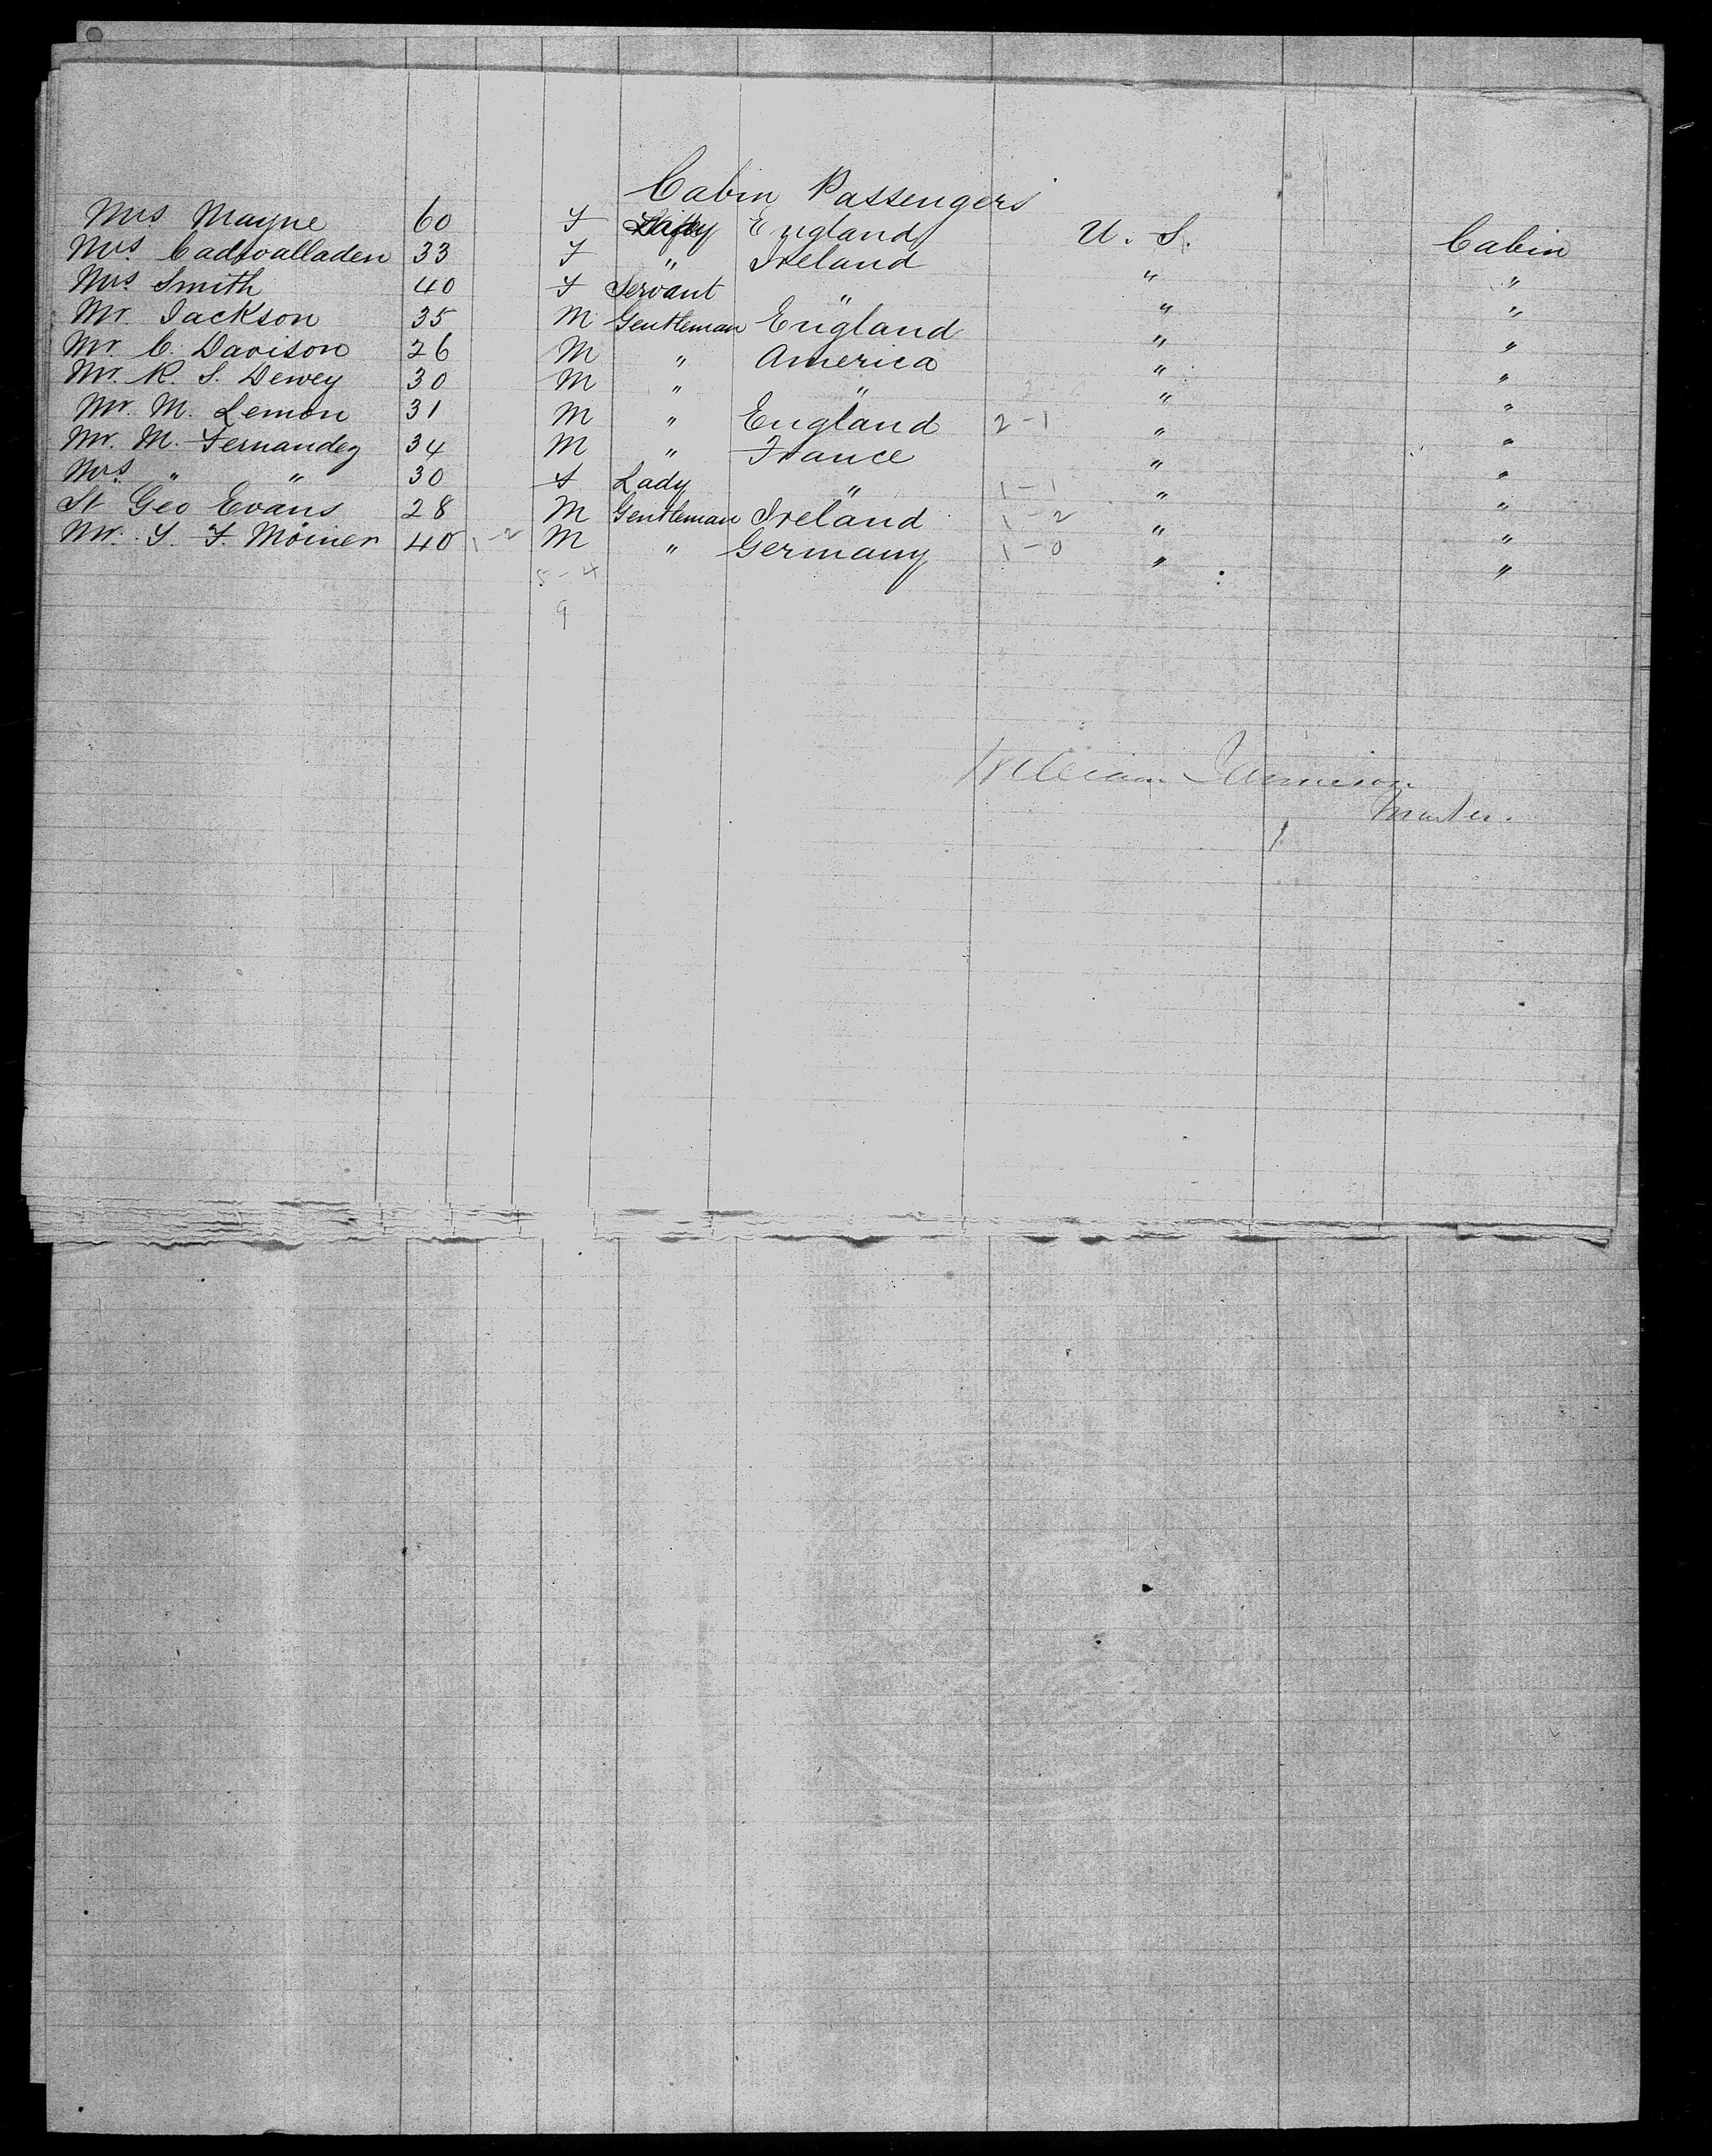 Cabin Passengers
Mrs Mayne 60 F Lady England U. S. Cabin
Mrs Cadwalladen 33 F " Ireland " "
Mrs Smith 40 F Servant " " "
Mr. Jackson 35 M Gentleman England " "
Mr. C. Davison 26 M " America " "
Mr. R. S. Dewey 30 M " " " "
Mr. M. Lemon 31 M " England 2-1 " "
Mr. M. Fernandez 34 M " France " "
Mrs. " " 30 F Lady " 1-1 " "
St Geo Evans 28 M Gentleman Ireland 1-2 " "
Mr. 40 1-2 M " Germany 1-0 " "
5-4
9
William Jamieson
Master.